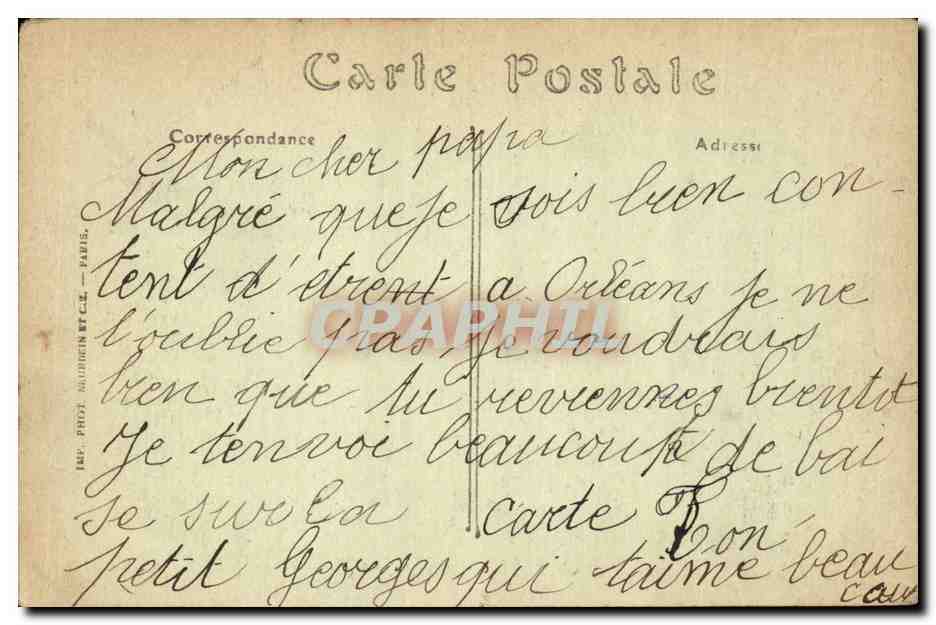 Carte Postale
Correspondance
Adresse
Mon cher papa
Malgré que je sois bien con-
tent d'etrent a Orléans je ne
l'oublie pas, je voudrais
bien que tu reviennes bientot
Je tenvoi beaucoup de bai
se sur la carte Ton
petit Georges qui taime beau
cau
IMP. PHOT. NEURDEIN ET Cie. — PARIS.
CPAPHIL